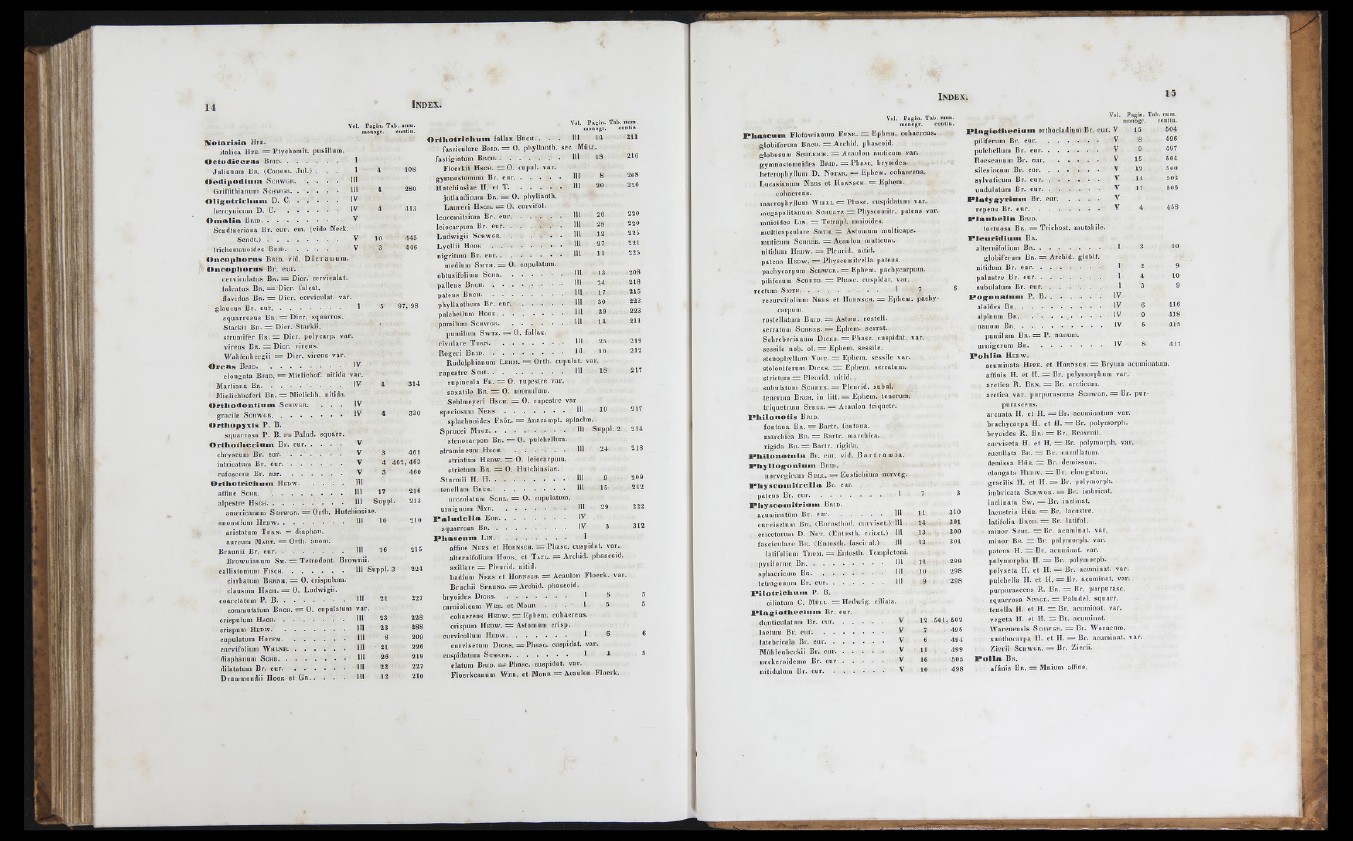 14
INDEX.
Vol. Pagin. Tab. num.
monogr. contin.
Notarisia Hpe.
italica Hpe. = Ptychomit. pusillum.
Octodiceras Brid. I
Julianum Br. (Conom. Jul.) I 4 108
Oedipodium Schwgr. III
Griffithianum Schwgr. III 4 280
Oligotrichum D. C. IV
hercynicum D. C. IV 4 413
Omalia Brid. V
Sendtneriana Br. eur. em. (vide Neck.
Sendt.) V 10 445
trichomanoides Brid. V 3 446
Oncophorus Brid. vid. Dicranum.
Oncophorus Br. eur.
cerviculatus Bd. = Dicr. cerviculat.
falcatus Bd. = Dicr. falcat.
flavidus Bd. = Dicr. cerviculat. var.
glaucus Br. eur. I 5 97, 98
squarrosus Bd. = Dicr. squarros.
Starkii Bd. = Dicr. Starkii.
strumifer Bd. = Dicr. polycarp. var.
virens Bd. = Dicr. virens.
Wahlenbergii = Dicr. virens var.
Oreas Brid. IV
elongata Brid. = Mielichof. nitida var.
Martiana Bd. IV 4 314
Mielichhoferi Bd. = Mielichh. nitida.
Orthodontium Schwgr. IV
gracile Schwgr. IV 4 330
Orthopyxis P. B.
squarrosa P. B. = Palud. squarr.
Orthothecium Br. eur. V
chryseum Br. eur. V 3 461
intricatum Br. eur. V 4 462, 463
rufescens Br. eur. V 3 460
Orthotrichum Hedw. III
affine Schd. III 17 216
alpestre Hsch. III Suppl. 213
americanum Schwgr. = Orth. Hutchinsiae.
anomalum Hedw. III 10 210
aristatum Turn. = diaphan.
aureum Mart. = Orth. anom.
Braunii Br. eur. III 16 215
Brownianum Sm. = Tetrodont. Brownii.
callistomum Fisch. III Suppl. 3 224
cirrhatum = O. crispulum.
clausum Hsch. = O. Ludwigii.
coarctatum P. B. III 21 227
commutatum Bruch. = O. cupulatum var.
crispulum Hsch. III 23 228
crispum Hedw. III 23 228
cupulatum Hoffm. III 8 209
curvifolium Wahlnb. III 21 226
diaphanum Schd. III 26 219
dilatatum Br. eur. III 22 227
Drummondii Hook et Gr. III 12 210
Vol. Pagin. Tab. num.
monogr. contin.
Orthotrichum fallax Bruch. III 14 211
fasciculare Brid. = O. phyllanth. sec. Müll.
fastigiatum Bruch. III 18 216
Floerkii Hsch. = O. cupul. var.
gymnostomum Br. eur. III 8 208
Hutchinsiae H. et T. III 20 226
jutlandicum Bd. = O. phyllanth.
Laureri Hsch. = O. curvifol.
leucomitrium Br. eur. III 26 220
leiocarpum Br. eur. III 28 220
Ludwigii Schwgr. III 12 225
Lyellii Hook III 27 221
nigritum Br. eur. III 11 225
medium = O. cupulatum.
obtusifolium Schd. III 13 208
pallens Bruch. III 24 218
patens Bruch. III 17 215
phyllanthum Br. eur. III 30 223
pulchellum Hook III 29 223
pumilum Schwgr. III 14 211
pumilum Swrz. = O. fallax.
rivulare Turn. III 25 219
Rogeri Brid. III 10 212
Rudolphianum Lehm. = Orth. cupulat. var.
rupestre Schl. III 18 217
rupincola Fk. = O. rupestre var.
saxatile Bd. = O. anomalum.
Sehlmeyeri Hsch. = O. rupestre var.
speciosum Nees III 19 217
splachnoides Fröl. = Anacampt. splachn.
Sprucei Mtge. III Suppl. 2 214
stenocarpon Bd. = O. pulchellum.
stramineum Hsch. III 24 218
striatum Hedw. = O. leiocarpum.
strictum Bd. = O. Hutchinsiae.
Sturmii H. H. III 9 209
tenellum Bruch. III 15 212
urceolatum Schd. = O. cupulatum.
urnigerum Myr. III 29 222
Paludella Ehr. IV
squarrosa Bd. IV 3 312
Phascum Lin. I
affine Nees et Hornsch. = Phasc. cuspidat. var.
alternifolium Hook. et Tayl. = Archid. phascoid.
axillare = Pleurid. nitid.
badium Nees et Hornsch. = Acaulon Floerk. var.
Bruchii Spreng. = Archid. phascoid.
bryoides Dicks. I 8 5
carniolicum Web. et Mohr I 5 5
cohaerens Hedw. = Ephem. cohaerens.
crispum Hedw. = Astomum crisp.
curvicollum Hedw. I 6 6
curvisetum Dicks. = Phasc. cuspidat. var.
cuspidatum Schreb. I 4 5
elatum Brid. = Phasc. cuspidat. var.
Floerkeanum Web. et Mohr = Acaulon Floerk.
INDEX.
15
Vol. Pagin. Tab. num.
monogr. contin.
Phascum Flotowianum Funk. = Ephem. cohaerens.
globiferum Bruch. = Archid. phascoid.
globosum = Acaulon muticum var.
gymnostomoides Brid. = Phasc. bryoides.
heterophyllum D. Notar. = Ephem. cohaerens.
Lucasianum Nees et Hornsch. = Ephem.
cohaerens.
macrophyllum = Phasc. cuspidatum var.
megapolitanum Schultz = Physcomitr. patens var.
mnioides Lin. = Tetrapl. mnioides.
multicapsulare Smith = Astomum multicaps.
muticum Schreb. = Acaulon muticum.
nitidum Hedw. = Pleurid. nitid.
patens Hedw. = Physcomitrella patens.
pachycarpum Schwgr. = Ephem. pachycarpum.
piliferum Schreb. = Phasc. cuspidat. var.
rectum Smith. I 7 6
recurvifolium Nees et Hornsch. = Ephem. pachy-
carpum.
rostellatum Brid. = Astom. rostell.
serratum Schreb. = Ephem. serrat.
Schreberianum Dicks. = Phasc. cuspidat. var.
sessile nob. ol. = Ephem. sessile.
stenophyllum Voit. = Ephem. sessile var.
stoloniferum Dicks. = Ephem. serratum.
strictum = Pleurid. nitid.
subulatum Schreb. = Pleurid. subul.
tenerum Bruch. in litt. = Ephem. tenerum.
triquetrum Spruc. = Acaulon triquetr.
Philonotis Brid.
fontana Bd. = Bartr. fontana.
marchica Bd. = Bartr. marchica.
rigida Bd. = Bartr. rigida.
Philonotula Br. eur. vid. Bartramia.
Phyllogonium Brid.
norvegicum = Eustichium norveg.
Physcomitrella Br. eur.
patens Br. eur. I 7 3
Physcomitrium Brid.
acuminatum Br. eur. III 11 310
curvisetum Bd. (Entosthod. curviset.) III 14 301
ericetorum D. Not. (Entosth. ericet.) III 13 300
fasciculare Bd. (Entosth. fascicul.) III 13 301
latifolium Thom. = Entosth. Templetoni.
pyriforme Br. III 11 299
sphaericum Bd. III 10 298
tetragonum Br. eur. III 9 298
Pilotrichum P. B.
ciliatum C. Müll. = Hedwig. ciliata.
Plagiothecium Br. eur.
denticulatum Br. eur. V 12 501, 502
laetum Br. eur. V 7 495
latebricola Br. eur. V 6 494
Mühlenbeckii Br. eur. V 11 499
neckeroideum Br. eur V 16 505
nitidulum Br. eur. V 10 498
Vol. Pagin. Tab. num.
monogr. contin.
Plagiothecium orthocladium Br. eur. V 15 504
piliferum Br. eur. V 8 496
pulchellum Br. eur. V 9 497
Roeseanum Br. eur. V 15 504
silesiacum Br. eur. V 12 500
sylvaticum Br. eur. V 14 503
undulatum Br. eur. V 17 506
Platygyrium Br. eur. V
repens Br. eur. V 4 458
Plaubelia Brid.
tortuosa Bd. = Trichost. mutabile.
Pleuridium Bd.
alternifolium Bd. I 3 10
globiferum Bd. = Archid. globif.
nitidum Br. eur. I 2 9
palustre Br. eur. I 4 10
subulatum Br. eur. I 3 9
Pogonatum P. B. IV
aloides Bd. IV 6 416
alpinum Bd. IV 9 418
nanum Bd. IV 6 415
pumilum Bd. = P. nanum.
urnigerum Bd. IV 8 417
Pohlia Hedw.
acuminata Hppe. et Hornsch. = Bryum acuminatum.
affinis H. et H. = Br. polymorphum var.
arctica R. Bn. = Br. arcticum.
arctica var. purpurascens Schwgr. = Br. pur-
purascens.
arcuata H. et H. = Br. acuminatum var.
brachycarpa H. et H. = Br. polymorph.
bryoides R. Bn. = Br. Brownii.
curviseta H. et H. = Br. polymorph. var.
cucullata Br. = Br. cucullatum.
demissa Hüb. = Br. demissum.
elongata Hedw. = Br. elongatum.
gracilis H. et H. = Br. polymorph.
imbricata Schwgr. = Br. imbricat.
inclinata Sw. = Br. inclinat.
lacustris Hüb. = Br. lacustre.
latifolia Brid. = Br. latifol.
minor Schl. = Br. acuminat. var.
minor Br. = Br. polymorph. var.
patens H. = Br. acuminat. var.
polymorpha H. = Br. polymorph.
polyseta H. et H. = Br. acuminat. var.
pulchella H. et H. = Br. acuminat. var.
purpurascens R. Bn. = Br. purpurasc.
squarrosa Spreng. = Paludel. squarr.
tenella H. et H. = Br. acuminat. var.
vegeta H. et H. = Br. acuminat.
Warneusis Schwgr. = Br. Warneum.
xanthocarpa H. et H. = Br. acuminat. var.
Zierii Schwgr. = Br. Zierii.
Polla Bd.
affinis Bd. = Mnium affine.